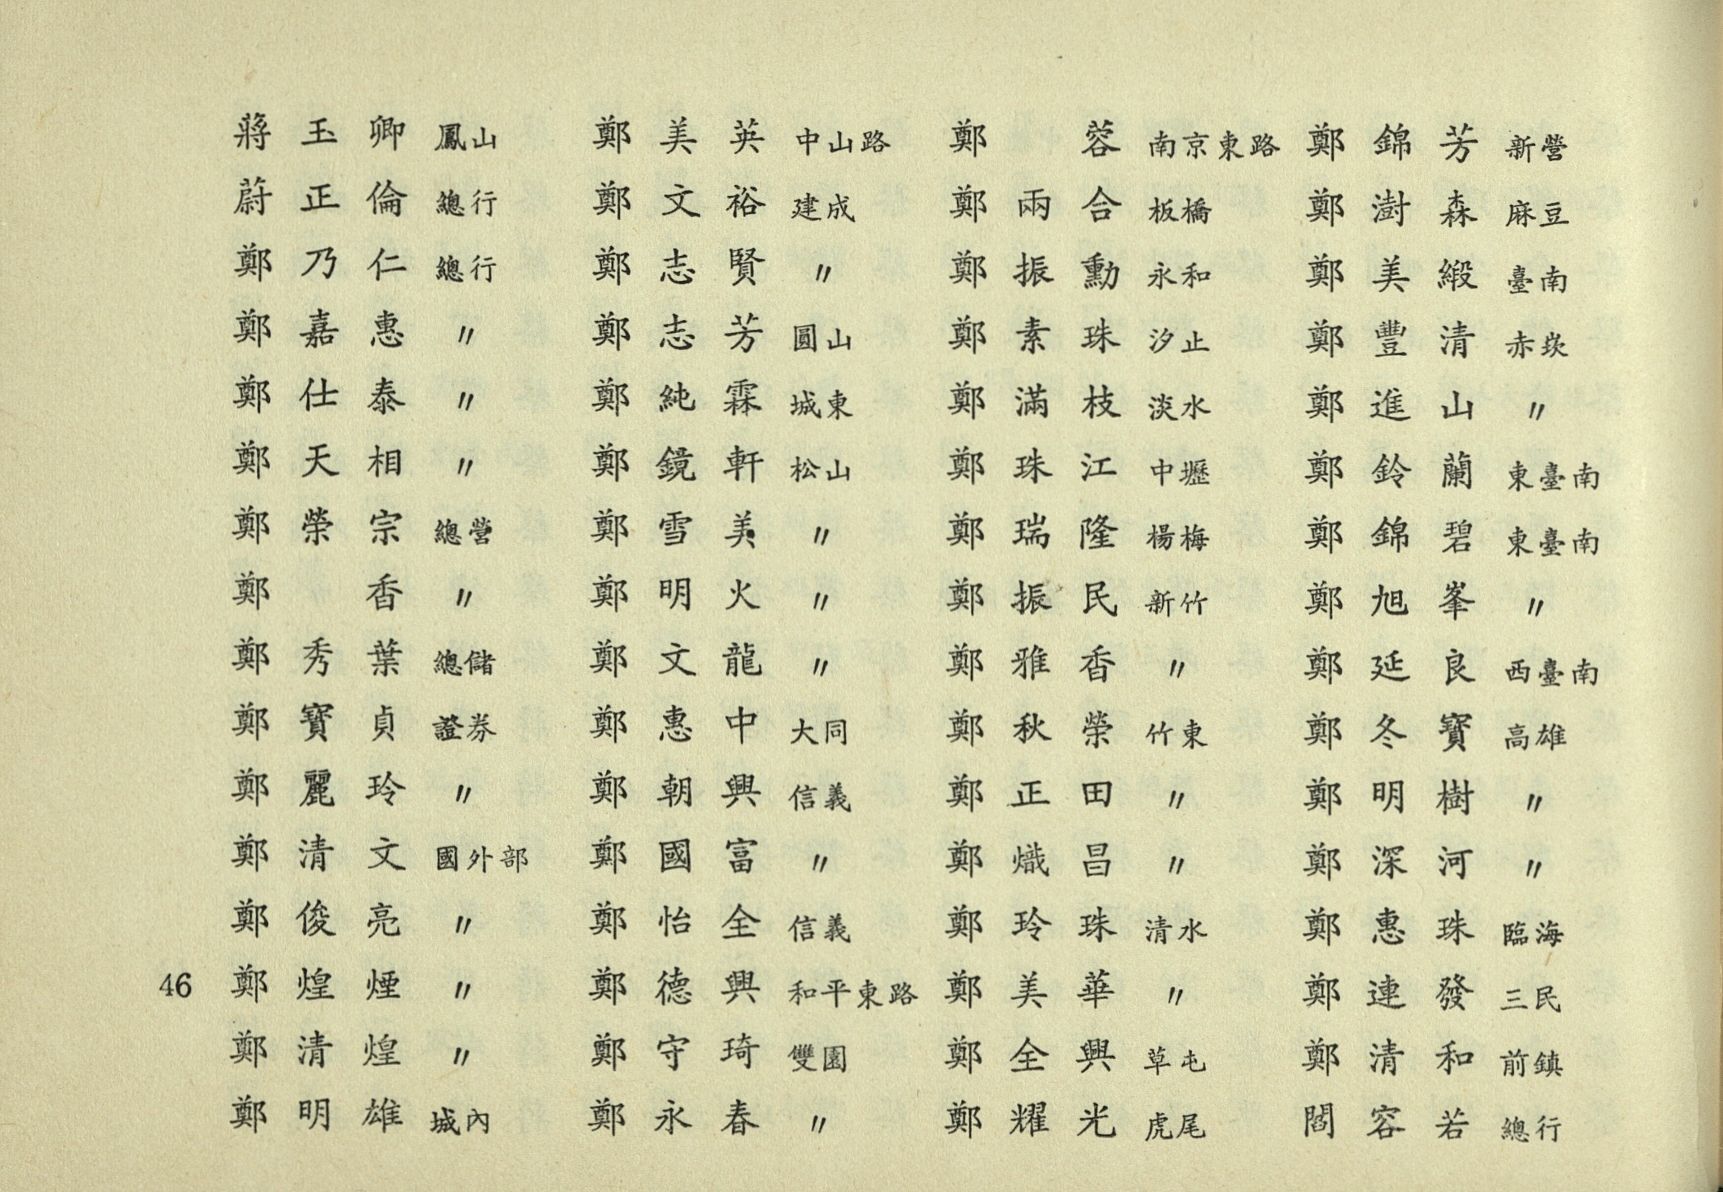 蔣玉卿 鳳山
蔚正倫 總行
鄭乃仁 總行
鄭嘉惠 〃
鄭仕泰 〃
鄭天相 〃
鄭榮宗 總營
鄭香 〃
鄭秀葉 總儲
鄭寶貞 證券
鄭麗玲 〃
鄭清文 國外部
鄭俊亮 〃
鄭煌煙 〃
鄭清煌 〃
鄭明雄 城內
鄭美英 中山路
鄭文裕 建成
鄭志賢 〃
鄭志芳 圓山
鄭純霖 城東
鄭鏡軒 松山
鄭雪美 〃
鄭明火 〃
鄭文龍 〃
鄭惠中 大同
鄭朝興 信義
鄭國富 〃
鄭怡全 信義
鄭德興 和平東路
鄭守琦 雙園
鄭永春 〃
鄭蓉 南京東路
鄭兩合 板橋
鄭振勳 永和
鄭素珠 汐止
鄭滿枝 淡水
鄭珠江 中壢
鄭瑞隆 楊梅
鄭振民 新竹
鄭雅香 〃
鄭秋榮 竹東
鄭正田 〃
鄭熾昌 〃
鄭玲珠 清水
鄭美華 〃
鄭全興 草屯
鄭耀光 虎尾
鄭錦芳 新營
鄭澍森 麻豆
鄭美緞 臺南
鄭豐清 赤崁
鄭進山 〃
鄭鈴蘭 東臺南
鄭錦碧 東臺南
鄭旭峯 〃
鄭延良 西臺南
鄭冬寶 高雄
鄭明樹 〃
鄭深河 〃
鄭惠珠 臨海
鄭連發 三民
鄭清和 前鎮
閻容若 總行
46